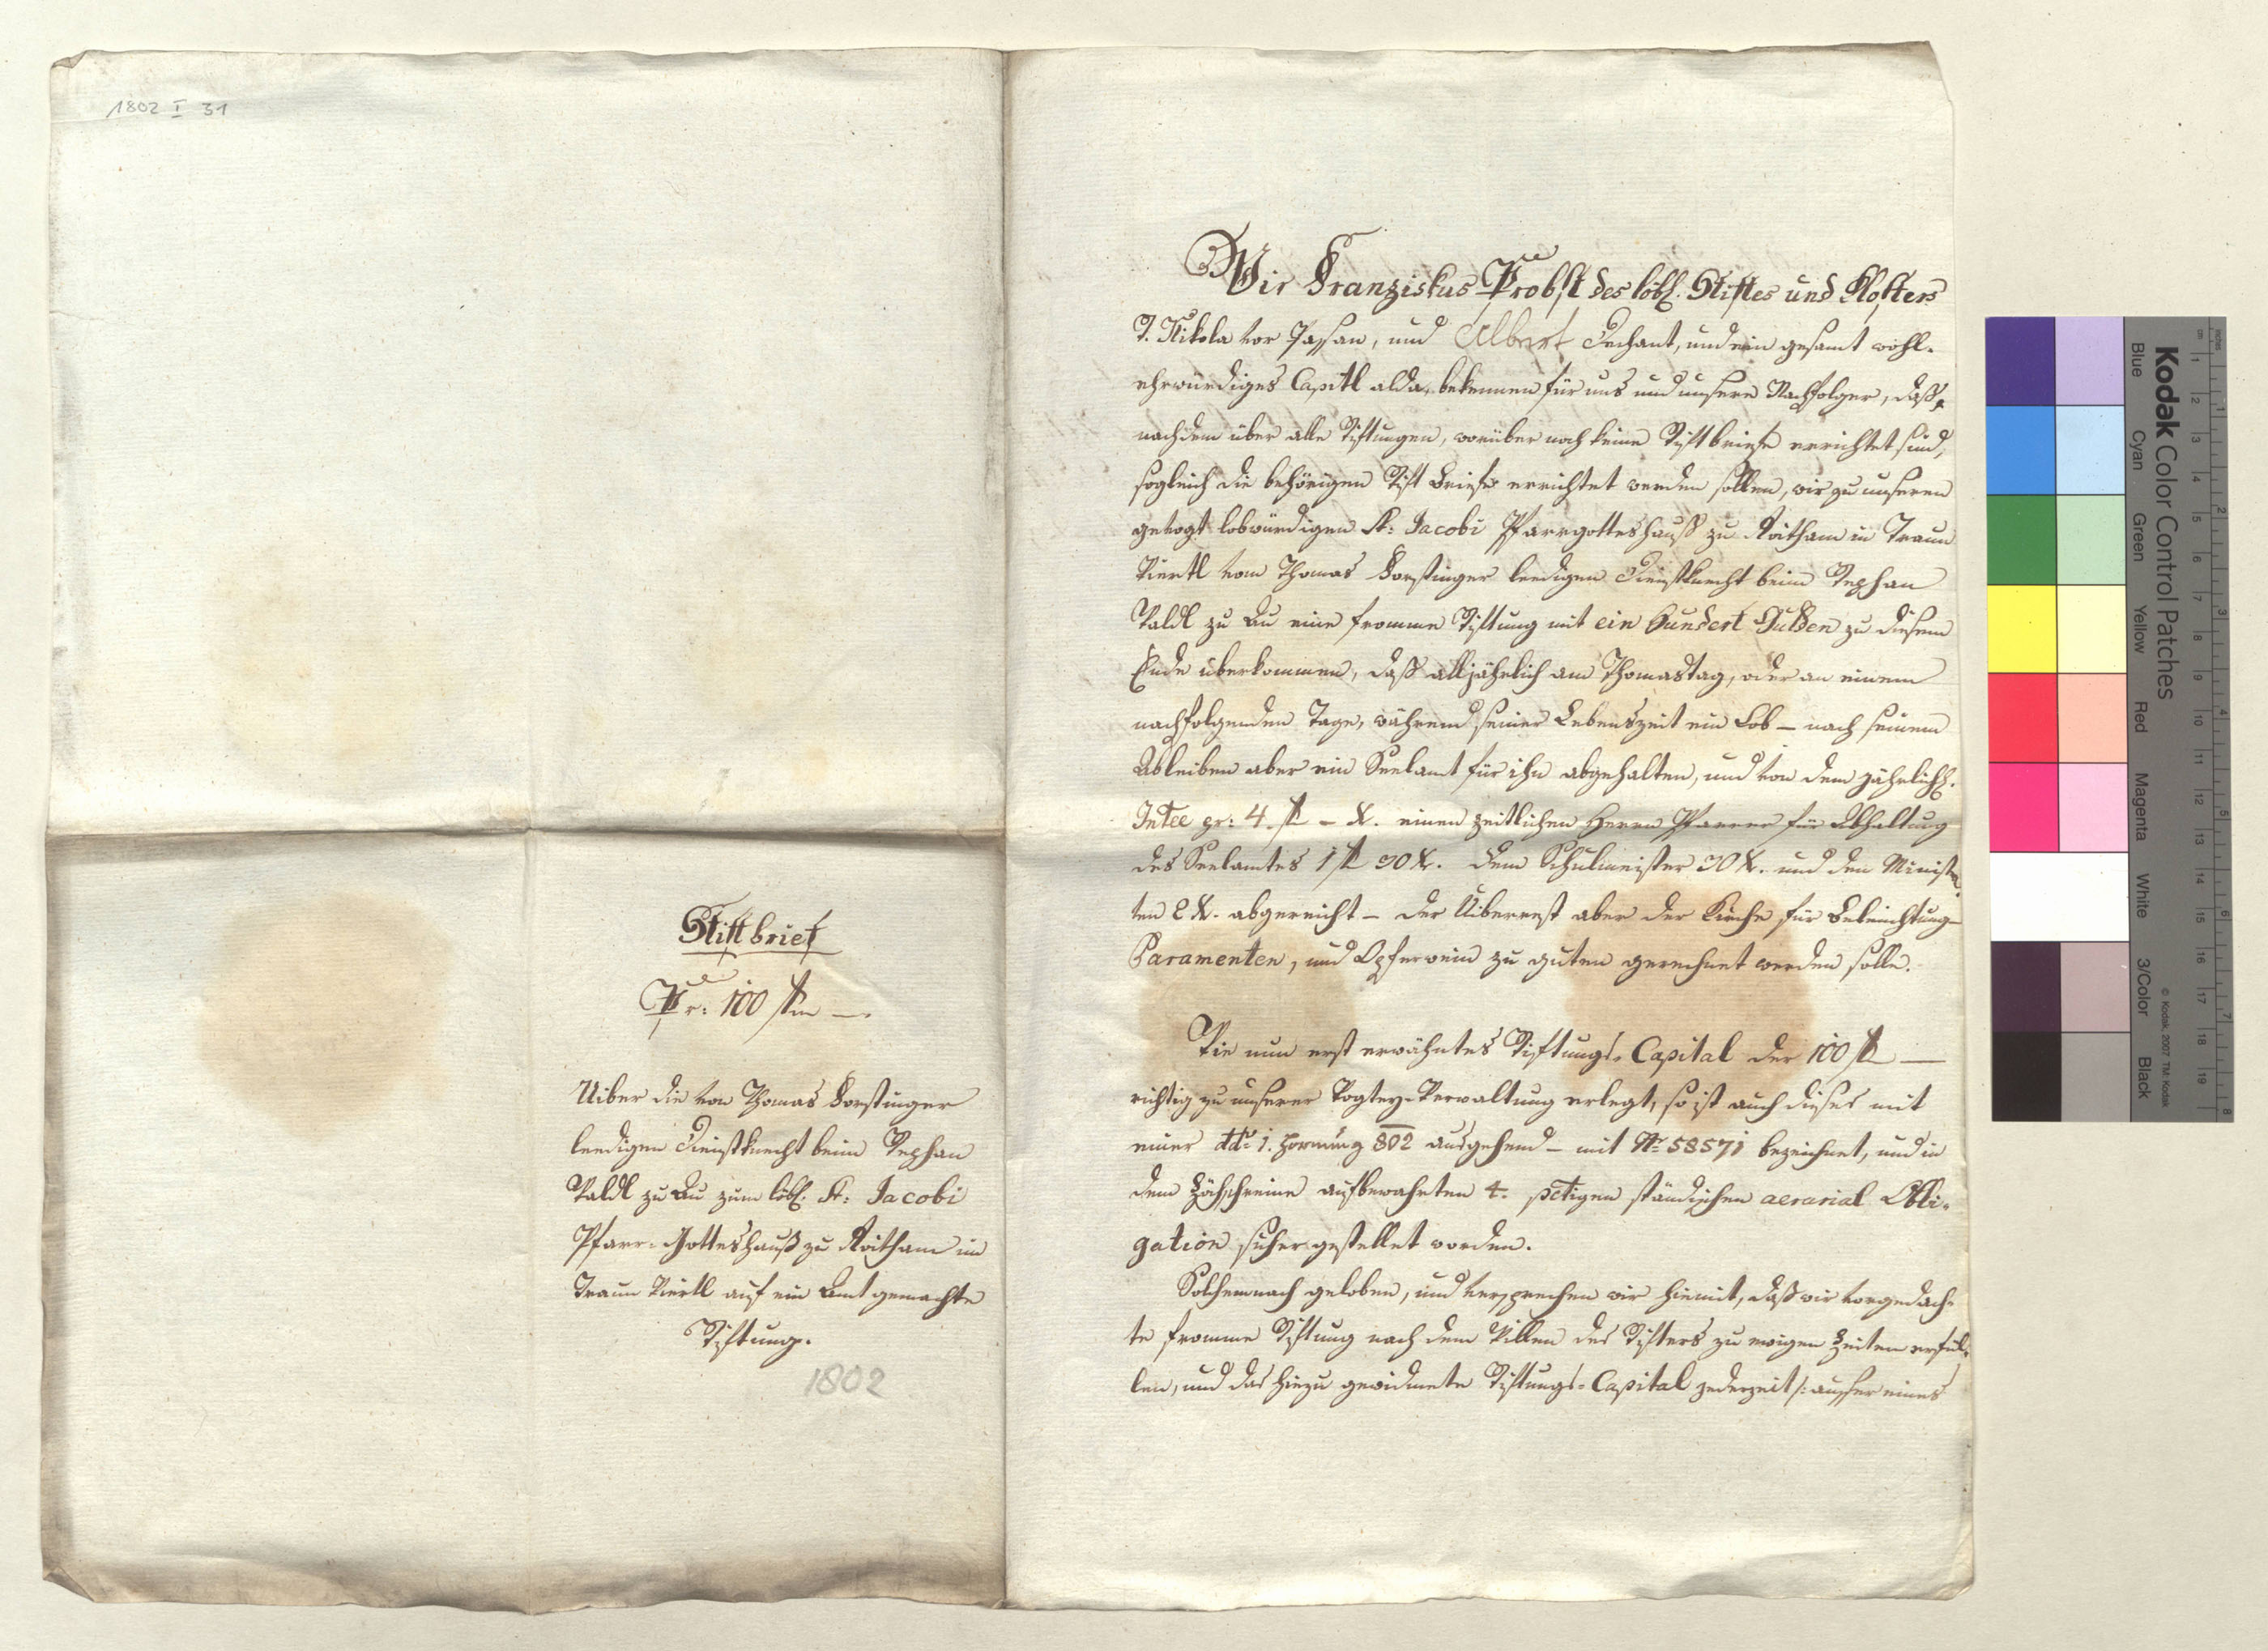 1802 I 31
Stiftbrief
Pr: 100 fl
Uiber die von Thomas Forstinger
leedigen Dienstknecht beim Stephan
Paldl zu Au zum löbl. St: Jacobi
Pfarr-Gotteshauß zu Roitham im
Traun Viertl auf ein Amt gemachte
Stiftung.
1802
Wir Franziskus Probst des löbl. Stiftes und Klosters
St. Nikola vor Passau, und Albert Dechant, und ein gesamt wohl-
ehrwürdiges Capitl alda, bekennen für uns und unsere Nachfolger, daß,
nachdem über alle Stiftungen, worüber noch keine Stiftbriefe errichtet sind,
sogleich die behörigen Stift Briefe errichtet werden sollen, wir zu unserem
gevogt lobwürdigen St: Jacobi Pfarrgotteshauß zu Roitham in Traun
Viertl vom Thomas Forstinger leedigen Dienstknecht beim Stephan
Paldl zu Au eine fromme Stiftung mit ein Hundert Gulden zu diesem
Ende überkommen, daß alljährlich am Thomastag, oder an einem
nachfolgenden Tage, während seiner Lebenszeit ein Lob – nach seinem
Ableiben aber ein Seelamt für ihn abgehalten, und von dem jährlich.
Intee pr: 4 fl – X. einen zeitlichen Herrn Pfarrer für Abhaltung
des Seelamtes 1 fl 30 X. dem Schulmeister 30 X. und den Ministran-
ten 2 X. abgereicht – der Uiberrest aber der Kirche für Beleuchtung
Paramenten, und Opferwein zu guten gerechnet werden solle.
Wie nun erst erwähntes Stiftungs-Capital der 100 fl —
richtig zu unserer Vogtey-Verwaltung erlegt, so ist auch dieses mit
einer ddo 1. Hornung 802 ausgehend – mit No 58571 bezeichnet, und in
dem Zöchschreine aufbewahrten 4. pctigen ständischen aerarial Obli-
gation sicher gestellet worden.
Solchemnach geloben, und versprechen wir hiemit, daß wir vorgedach-
te fromme Stiftung nach dem Willen des Stifters zu ewigen Zeiten erfül-
len, und das hiezu gewidmete Stiftungs-Capital jederzeit /: ausser eines
Kodak Color Control Patches
Blue Cyan Green Yellow Red Magenta White 3/Color Black
© Kodak, 2007 TM: Kodak